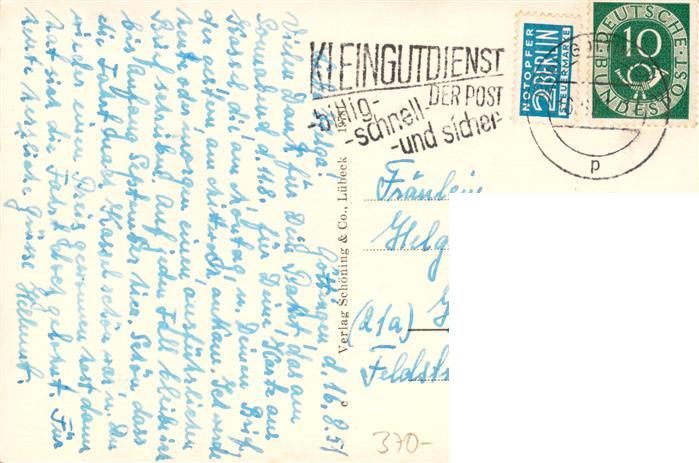 KLEINGUTDIENST
DER POST
-billig-
-schnell-
-und sicher
NOTOPFER
2 BERLIN
STEUERMARKE
DEUTSCHE POST
10
BUNDESPOST
p
Göttingen, d. 16.8.54
Vielen Dank für Dein Paket, das am
Sonnabend d. für Deine Karte aus
Kassel die am Montag u. Deinen Brief
der am Mittwoch ankam. Ich werde
morgen einen ausführlichen
Brief schreiben. Auf jeden Fall bleibe ich
bis Anfang September hier. Schön dass
die Fahrt nach Kassel schön war u. Du
wieder einen Preis gewonnen hast, dann
hat sich die Fahrt gelohnt. Für
heute herzliche Grüsse Helmut.
Verlag Schöning & Co., Lübeck
c
Fräulein
Helg
(21a)
Feldst
370-